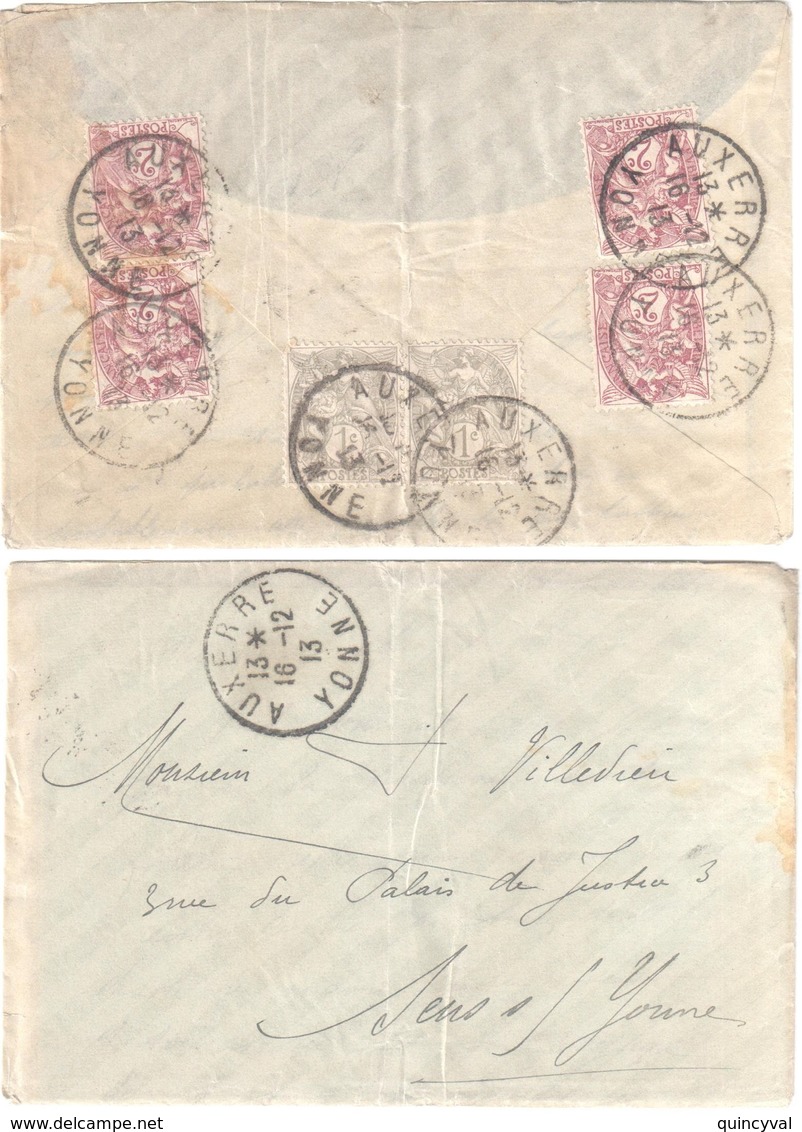 POSTES
2c
POSTES
2c
POSTES
2c
POSTES
2c
1c
POSTES
1c
POSTES
AUXERRE
13*
16-12
13
YONNE
AUXERRE
13*
16-12
13
YONNE
AUXERRE
13*
YONNE
AUXERRE
13*
YONNE
AUXE
13
YONNE
AUXERRE
13*
16-12
YONNE
AUXERRE
13*
16-12
13
YONNE
Monsieur Villedieu
3 rue du Palais de Justice 3
Sens s/ Yonne
quincyval